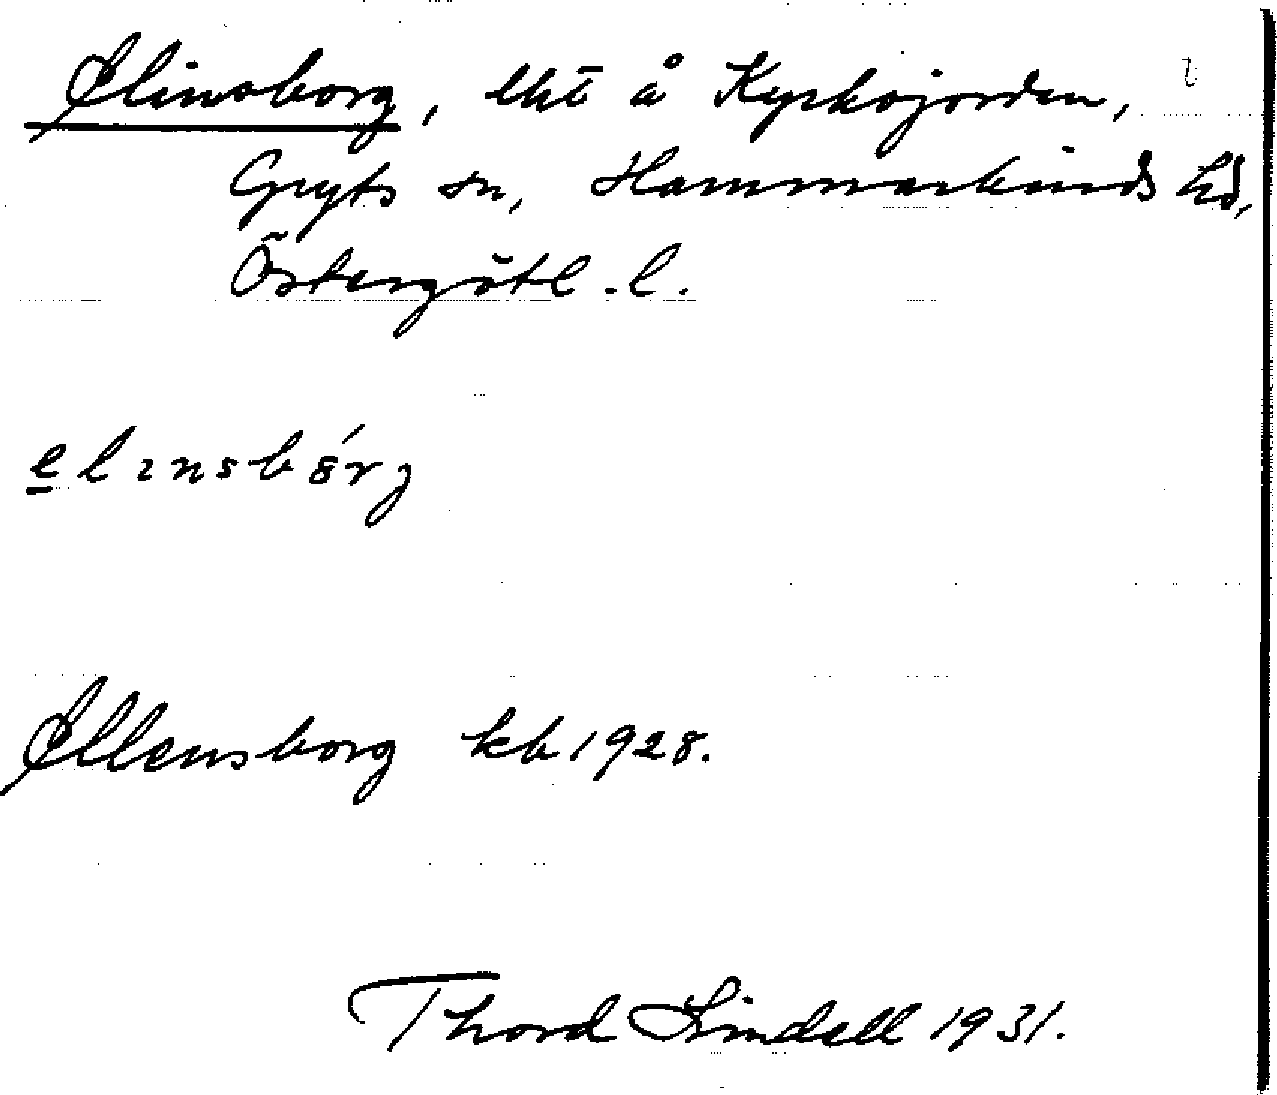 Elinsborg, lht å Kyrkojorden,
Gryts sn, Hammarkinds hd,
Östergötl. l.
elınsbórg
Ellensborg kb 1928.
Thord Lindell 1931.